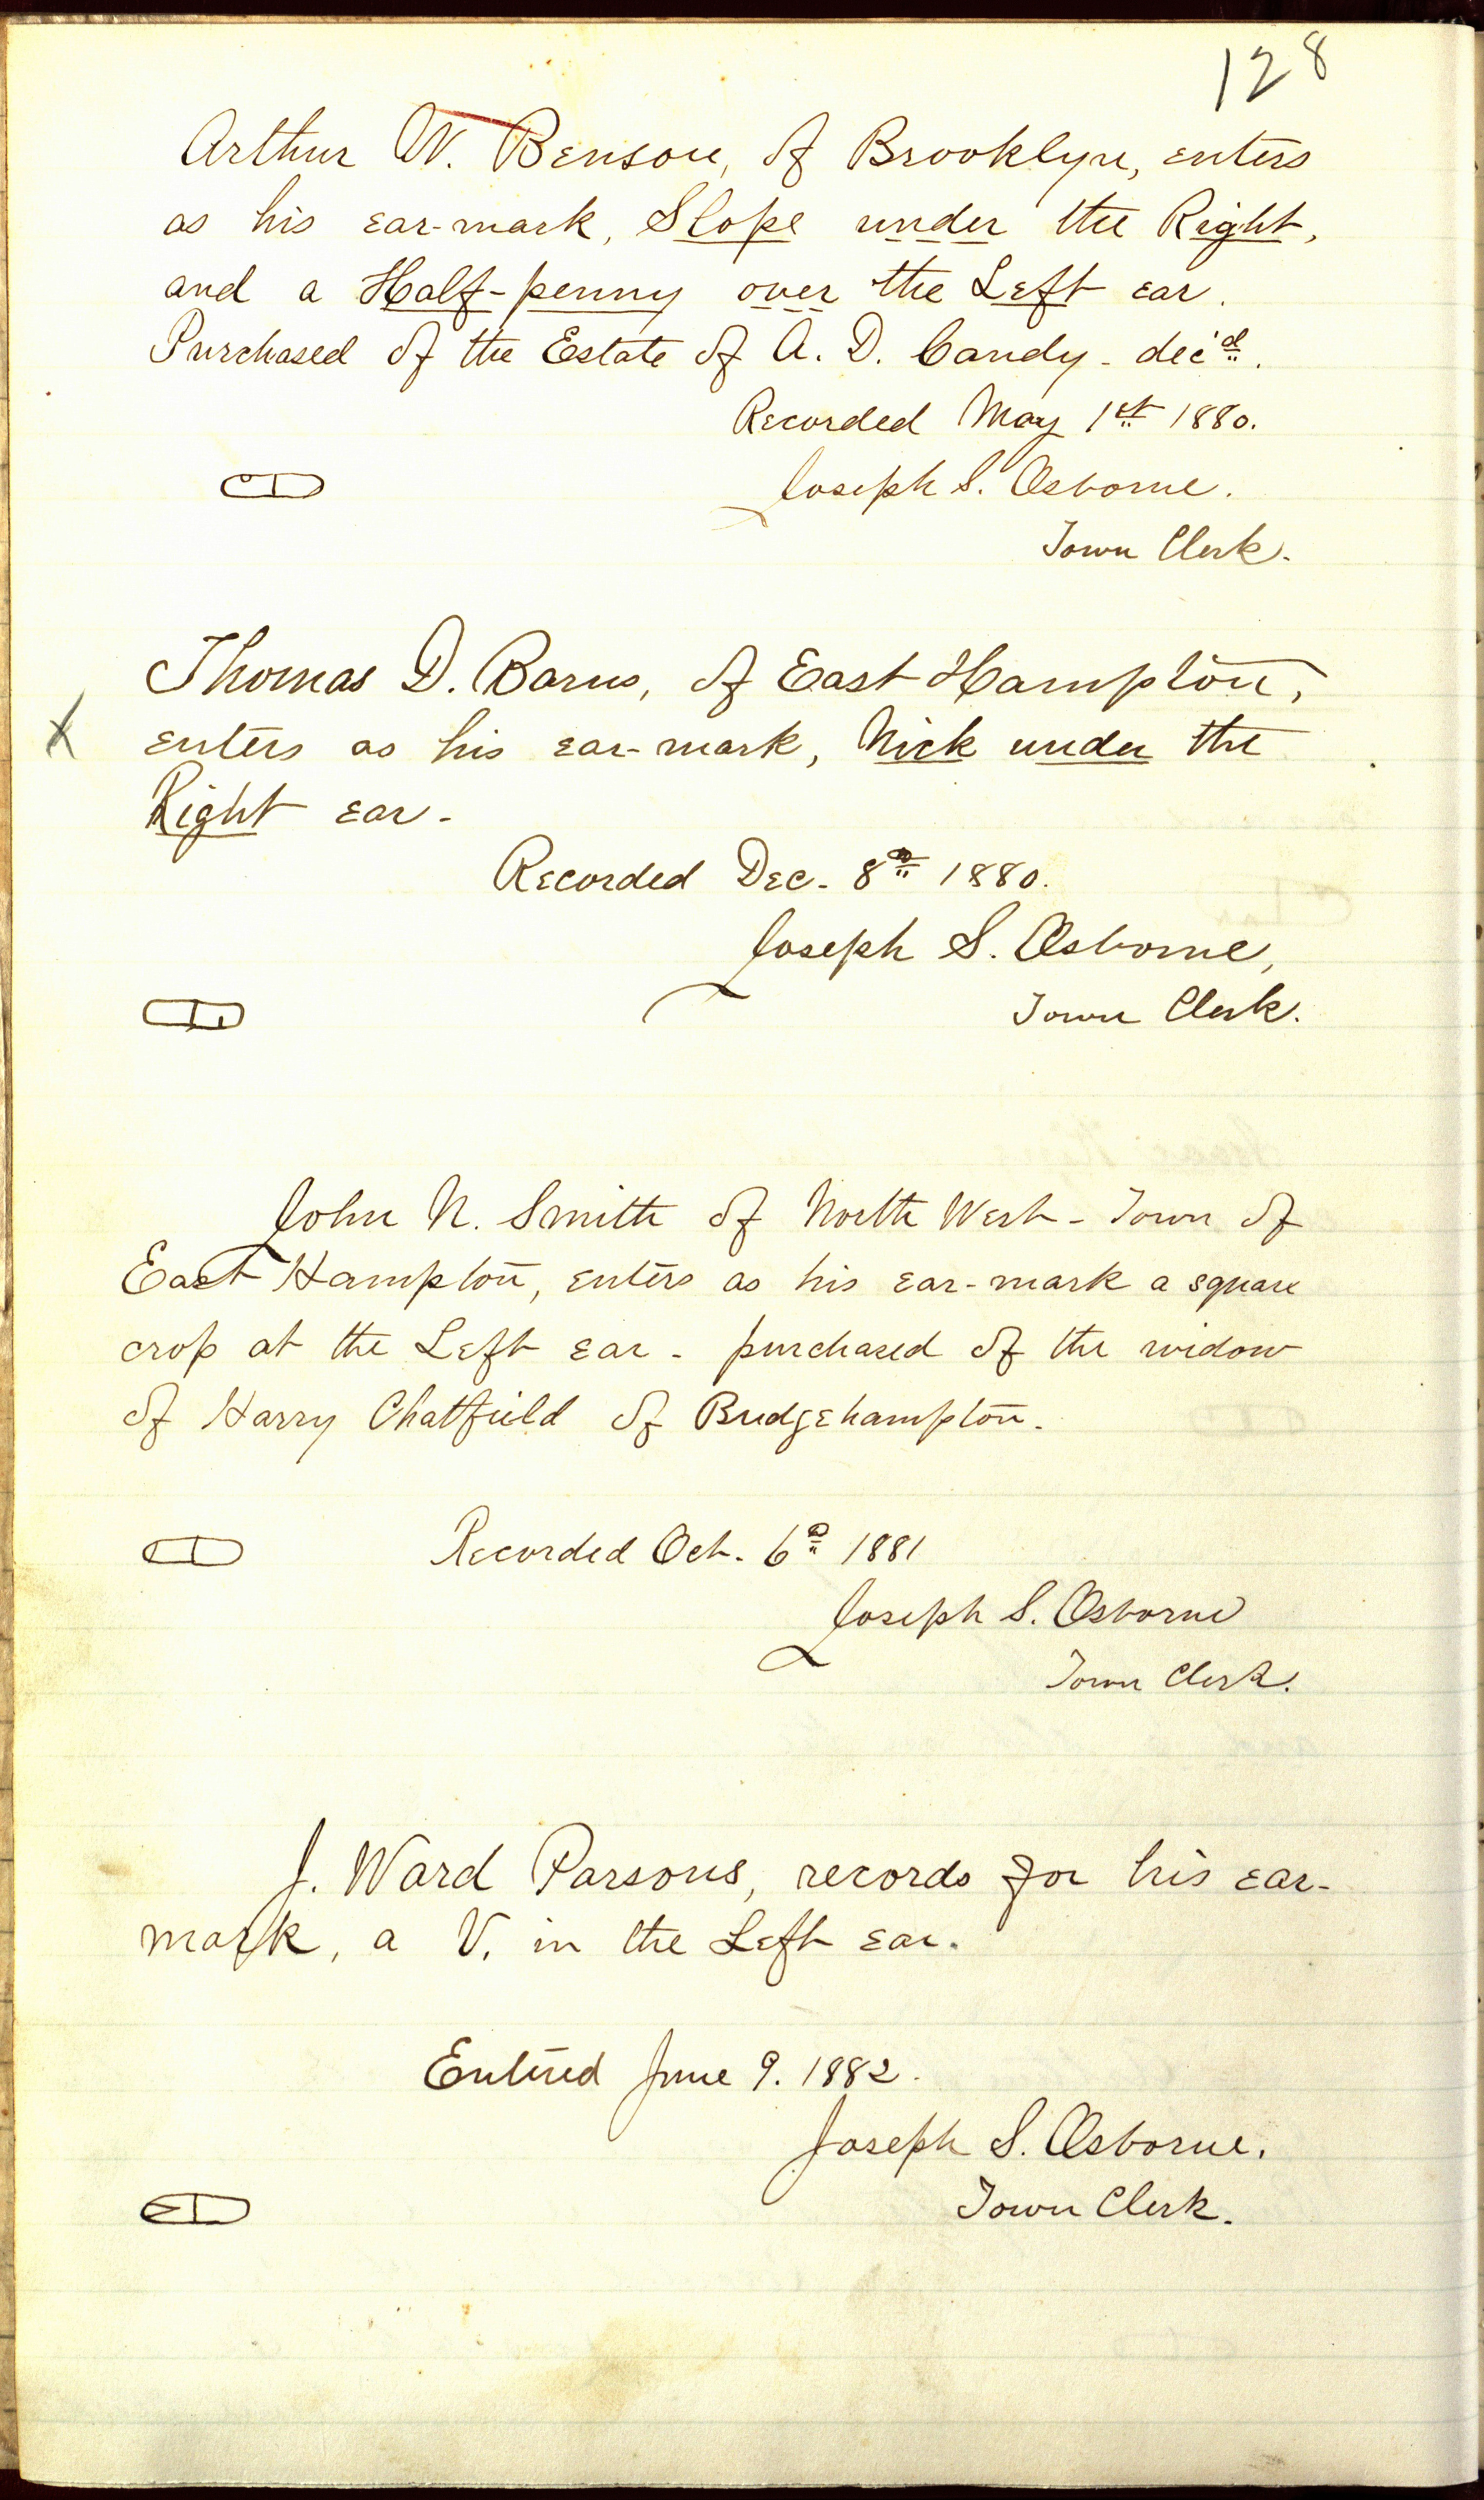 128
Arthur W. Benson, of Brooklyn, enters
as his ear-mark, Slope under the Right,
and a Half-penny over the Left ear.
Purchased of the Estate of A. D. Candy - dec'd.
Recorded May 1st 1880.
Joseph S. Osborne.
Town Clerk.
Thomas D. Barns, of East Hampton,
X
enters as his ear-mark, Nick under the
Right ear -
Recorded Dec. 8th 1880.
Joseph S. Osborne,
Town Clerk.
John N. Smith of North West - Town of
East Hampton, enters as his ear-mark a square
crop at the Left ear - purchased of the widow
of Harry Chatfield of Bridgehampton.
Recorded Oct. 6th 1881
Joseph S. Osborne
Town Clerk.
J. Ward Parsons, records for his ear-
mark, a V. in the Left ear.
Entered June 9. 1882.
Joseph S. Osborne.
Town Clerk.